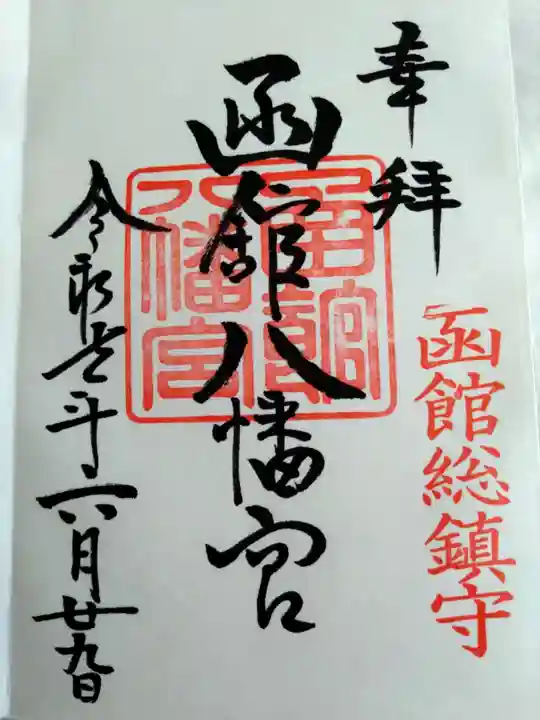 奉拝
函館総鎮守
函館八幡宮
函館
八幡宮
令和年六月廿九日